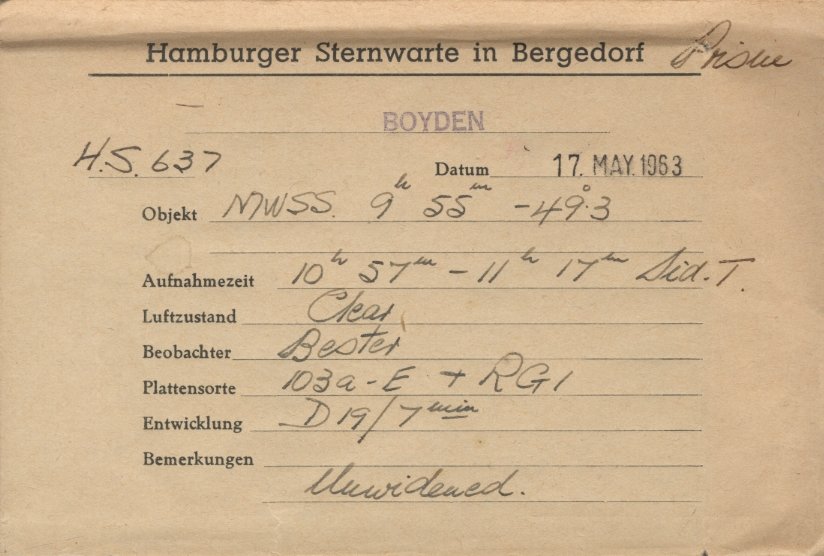 Hamburger Sternwarte in Bergedorf Prisme
BOYDEN
H.S. 637
Datum 17. MAY. 1963
Objekt MWSS. 9h 55m -49°.3
Aufnahmezeit 10h 57m - 11h 17m Sid. T.
Luftzustand Clear
Beobachter Bester
Plattensorte 103a-E + RG1
Entwicklung D19/7min
Bemerkungen
Unwidened.